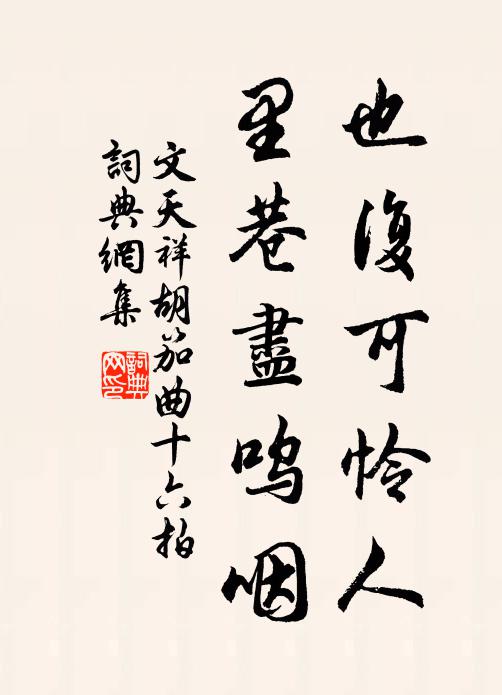 也復可怜人
里巷盡嗚咽
文天祥胡笳曲十六拍
詞典網集
詞典网印